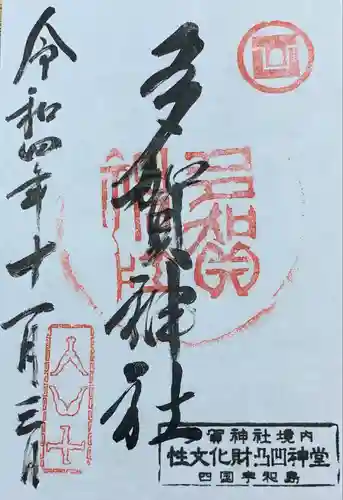 多賀神社
令和四年十一月三日
多賀神社
賀神社境内
性文化財凸凹神堂
四国宇和島